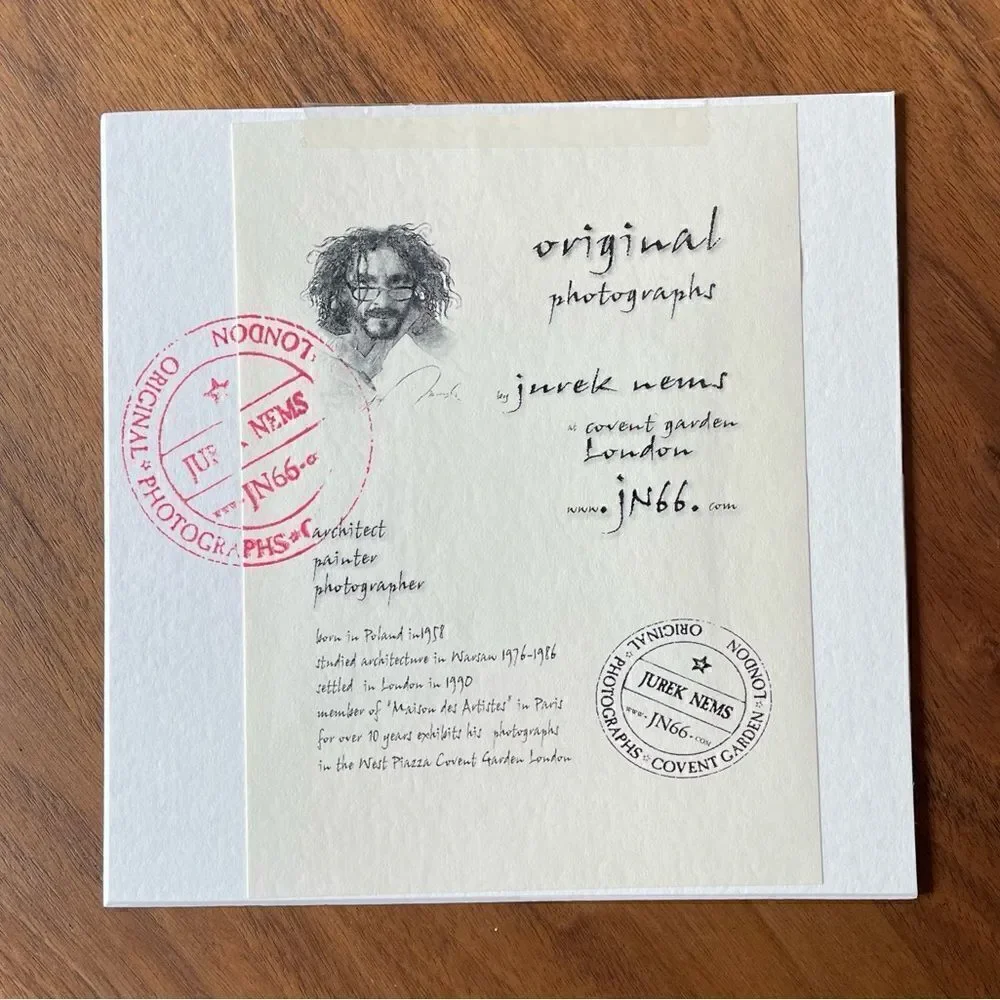 original
photographs
by jurek nems
at covent garden
London
www.jN66.com
LONDON
ORIGINAL ☆ PHOTOGRAPHS ☆ C
JUR NEMS
www.JN66.c
architect
painter
photographer
born in Poland in1958
studied architecture in Warsaw 1976-1986
settled in London in 1990
member of "Maison des Artistes" in Paris
for over 10 years exhibits his photographs
in the West Piazza Covent Garden London
ORIGINAL ☆ PHOTOGRAPHS ☆ COVENT GARDEN ☆ LONDON
JUREK NEMS
www.JN66.COM